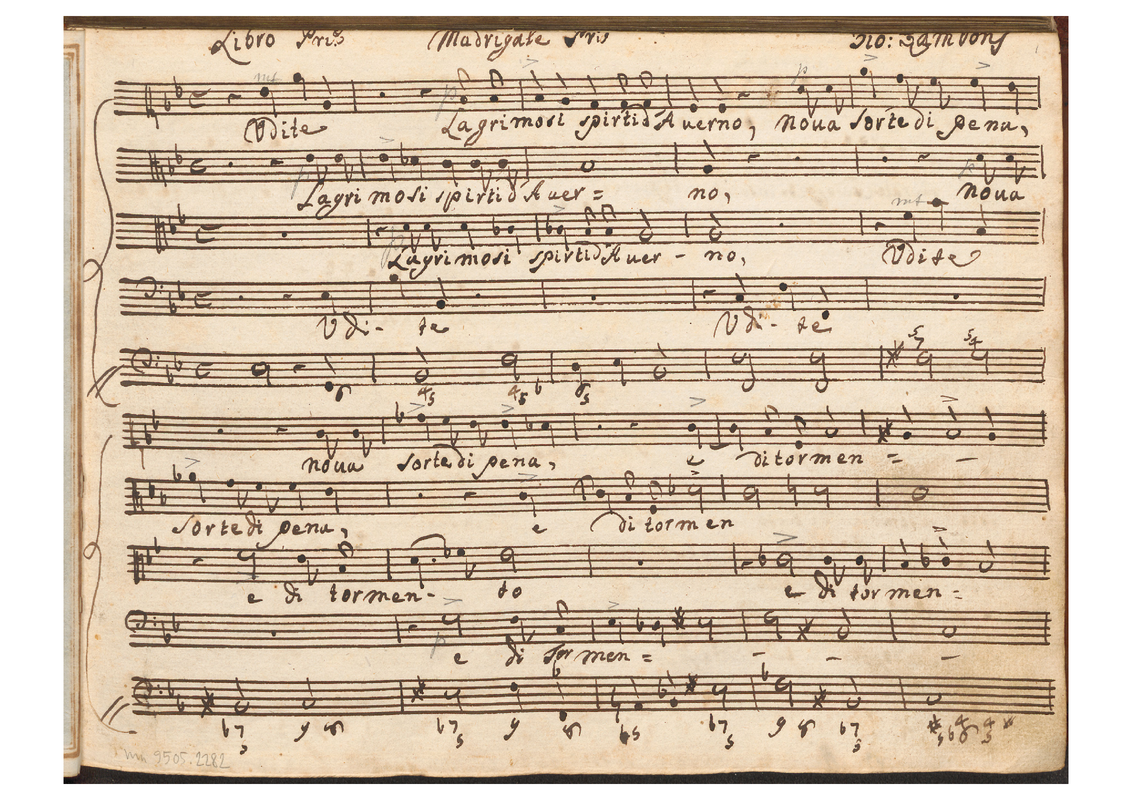 Libro Prio Madrigale Prio Gio: Zamboni
mf p p
Vdite Lagrimosi spirti d'Averno, noua sorte di pena,
p p
Lagrimosi spirti d'Auer = no, noua
mf
Lagrimosi spirti d'Auer - no, Vdite
Vdi - te Vdi - te
noua sorte di pena, e di tormen = -
sorte di pena, e di tormen
e di tormen - to e di tormen =
p
e di tormen = - - -